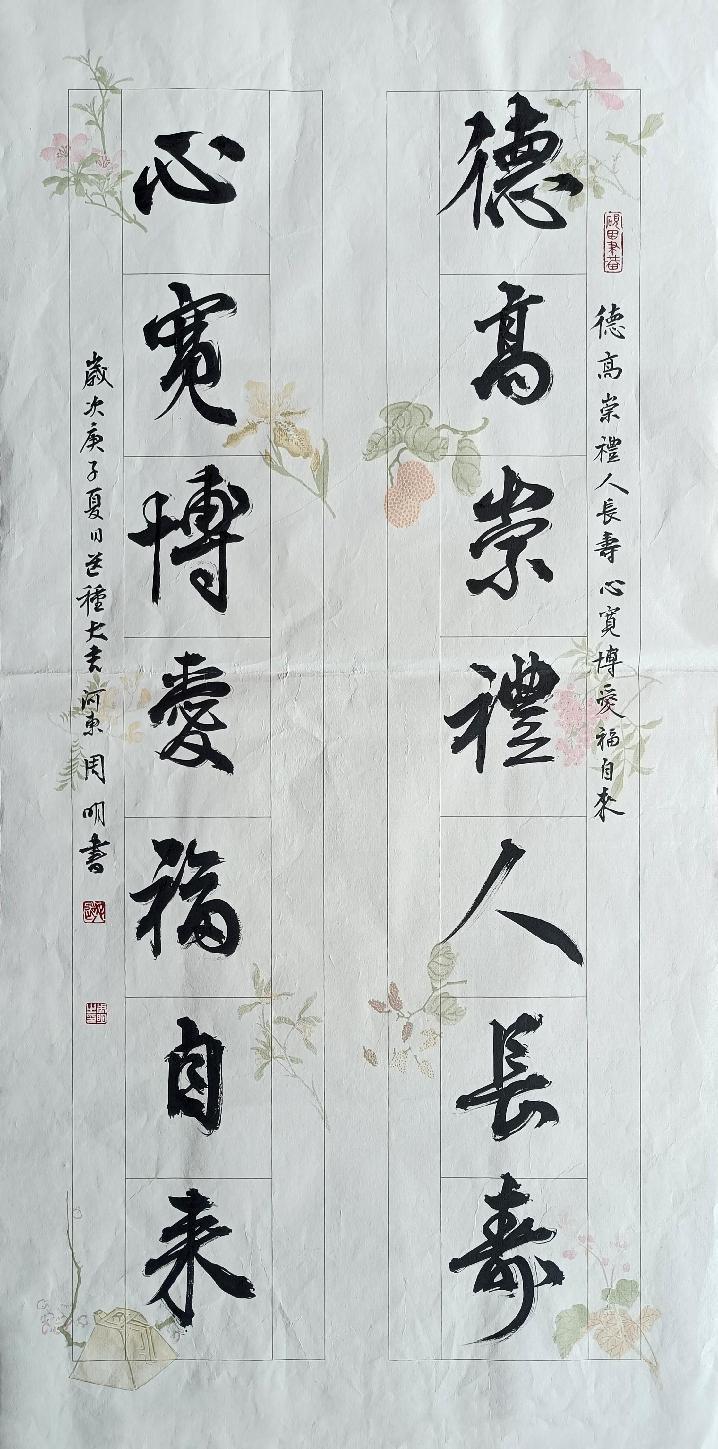 德高崇禮人長壽 心寬博愛福自來
德高崇禮人長壽
心寬博愛福自来
歲次庚子夏日芒種大吉河東周明書